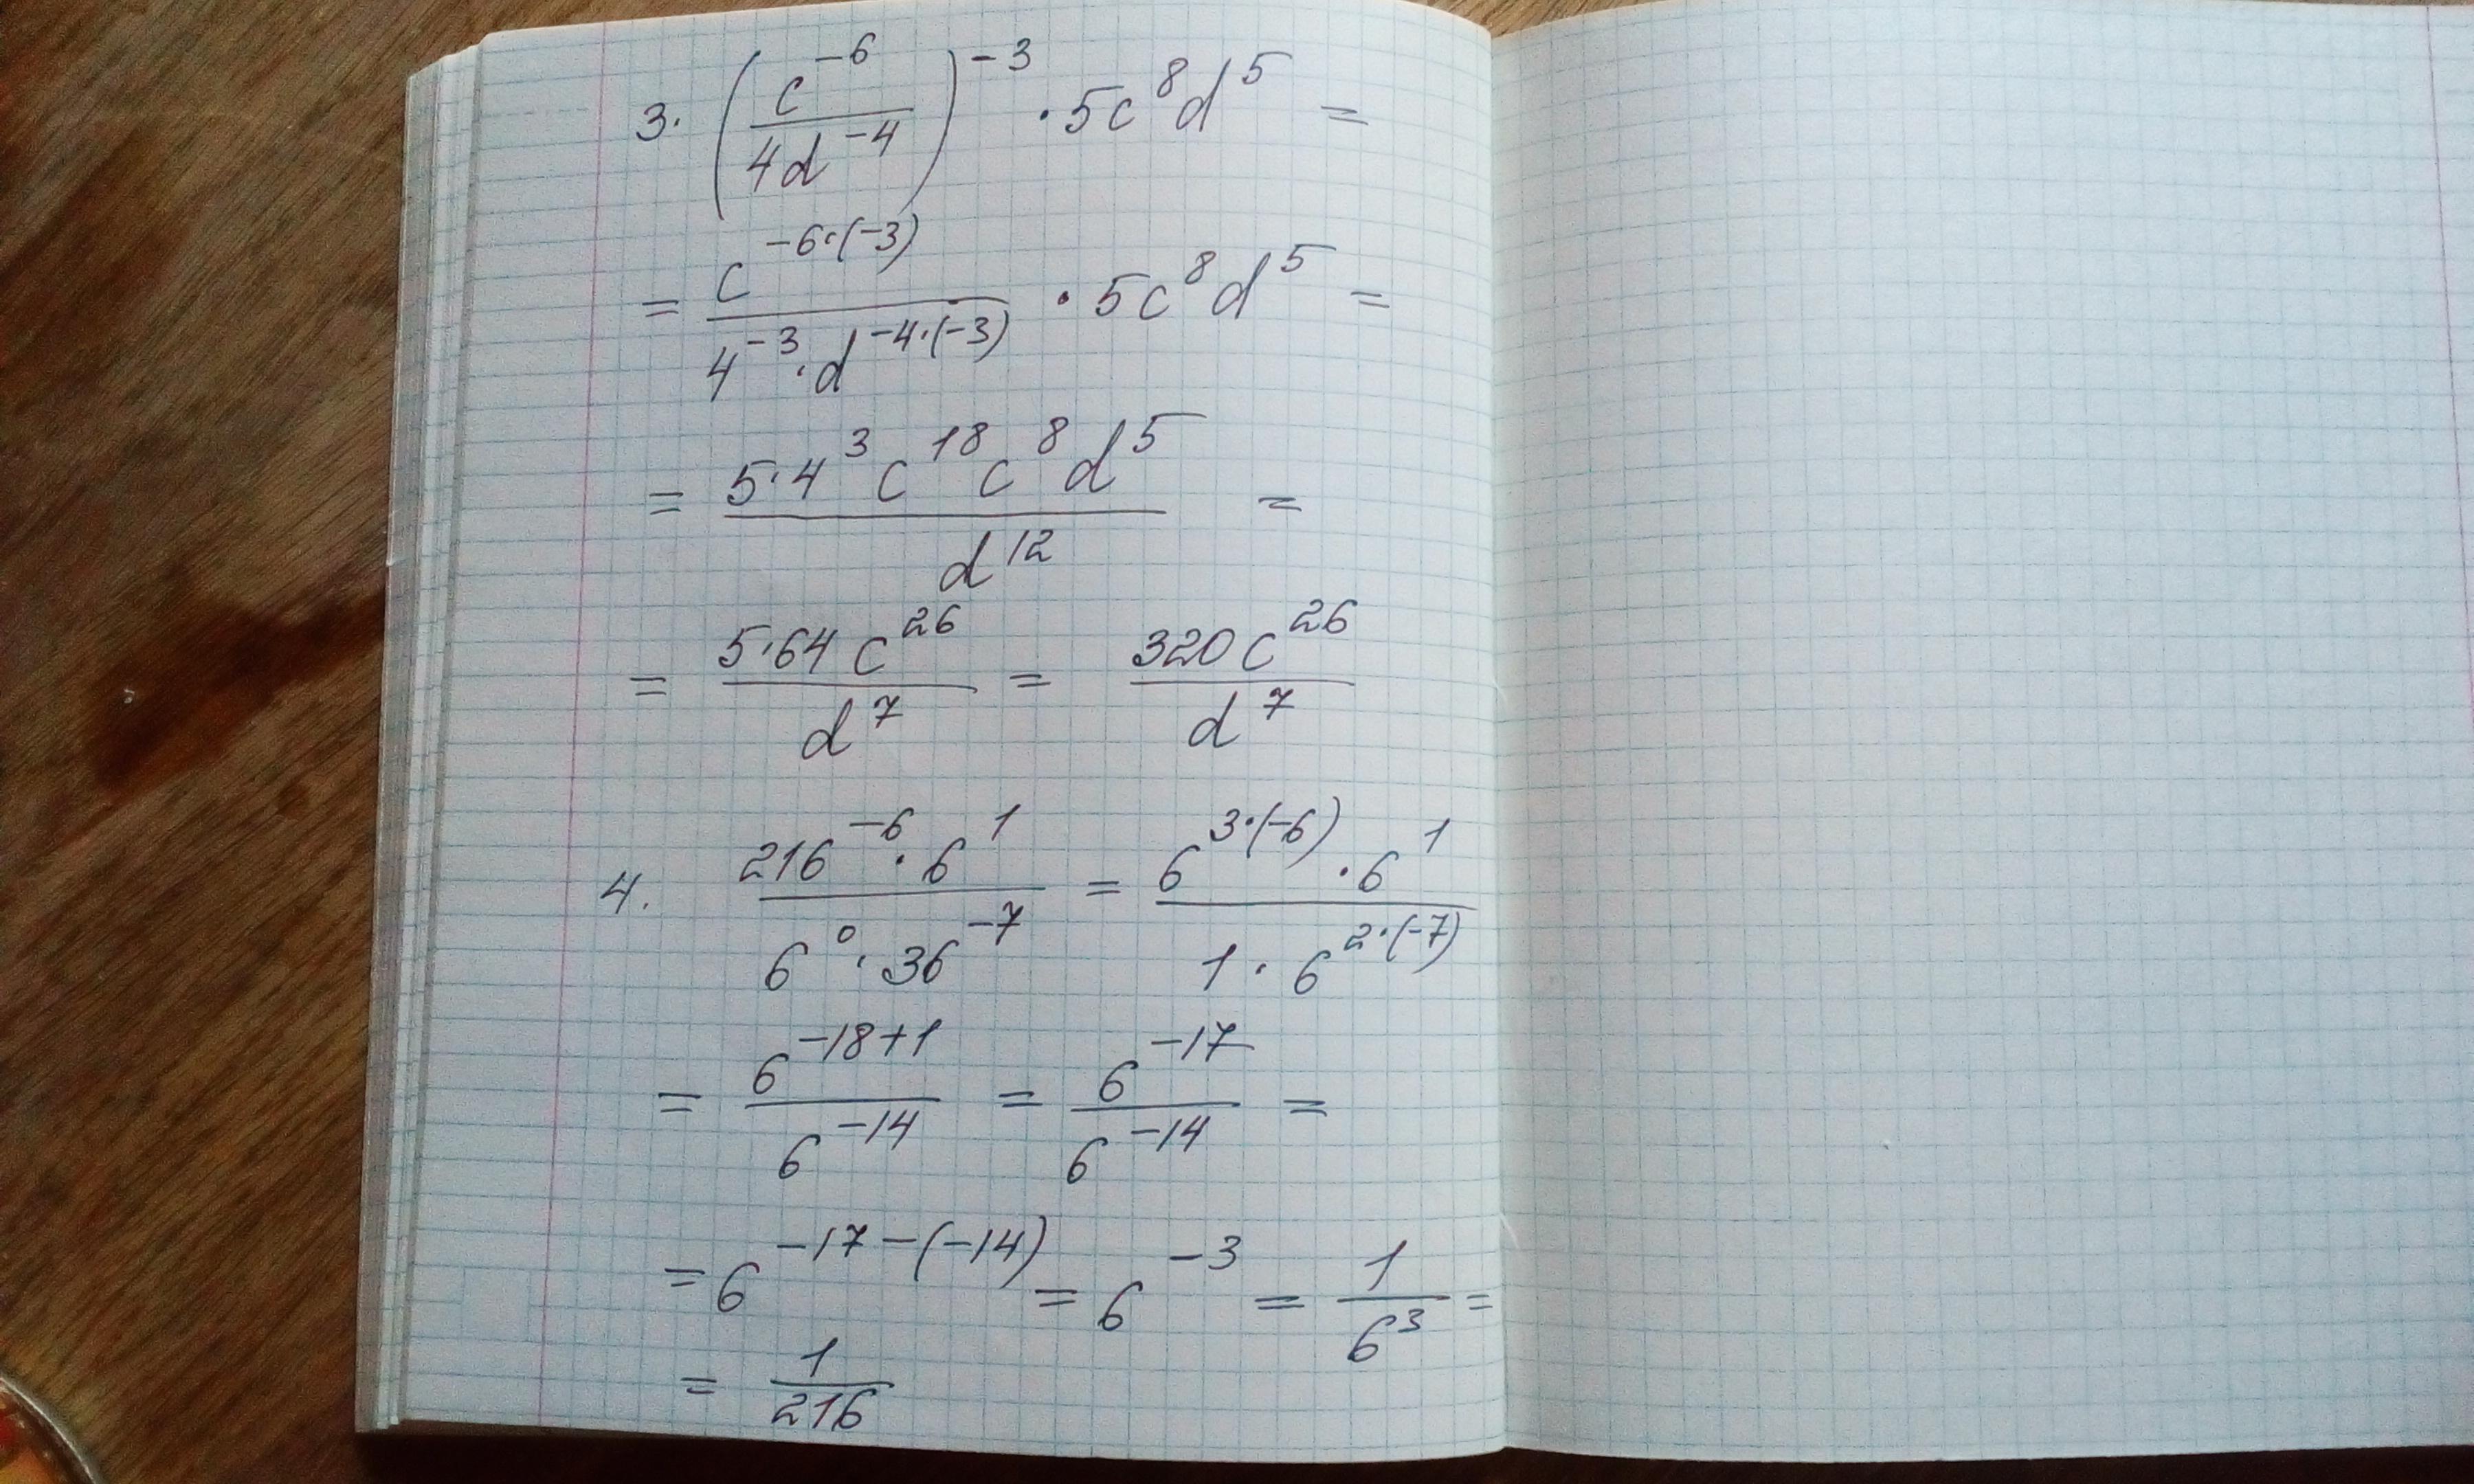 3. (c^{-6} / 4d^{-4})^{-3} · 5c^8 d^5 =
= c^{-6·(-3)} / 4^{-3} · d^{-4·(-3)} · 5c^8 d^5 =
= 5·4^3 c^{18} c^8 d^5 / d^{12} =
= 5·64 c^{26} / d^7 = 320 c^{26} / d^7
4. 216^{-6} · 6^1 / 6^0 · 36^{-7} = 6^{3·(-6)} · 6^1 / 1 · 6^{2·(-7)}
= 6^{-18+1} / 6^{-14} = 6^{-17} / 6^{-14} =
= 6^{-17-(-14)} = 6^{-3} = 1 / 6^3 =
= 1 / 216